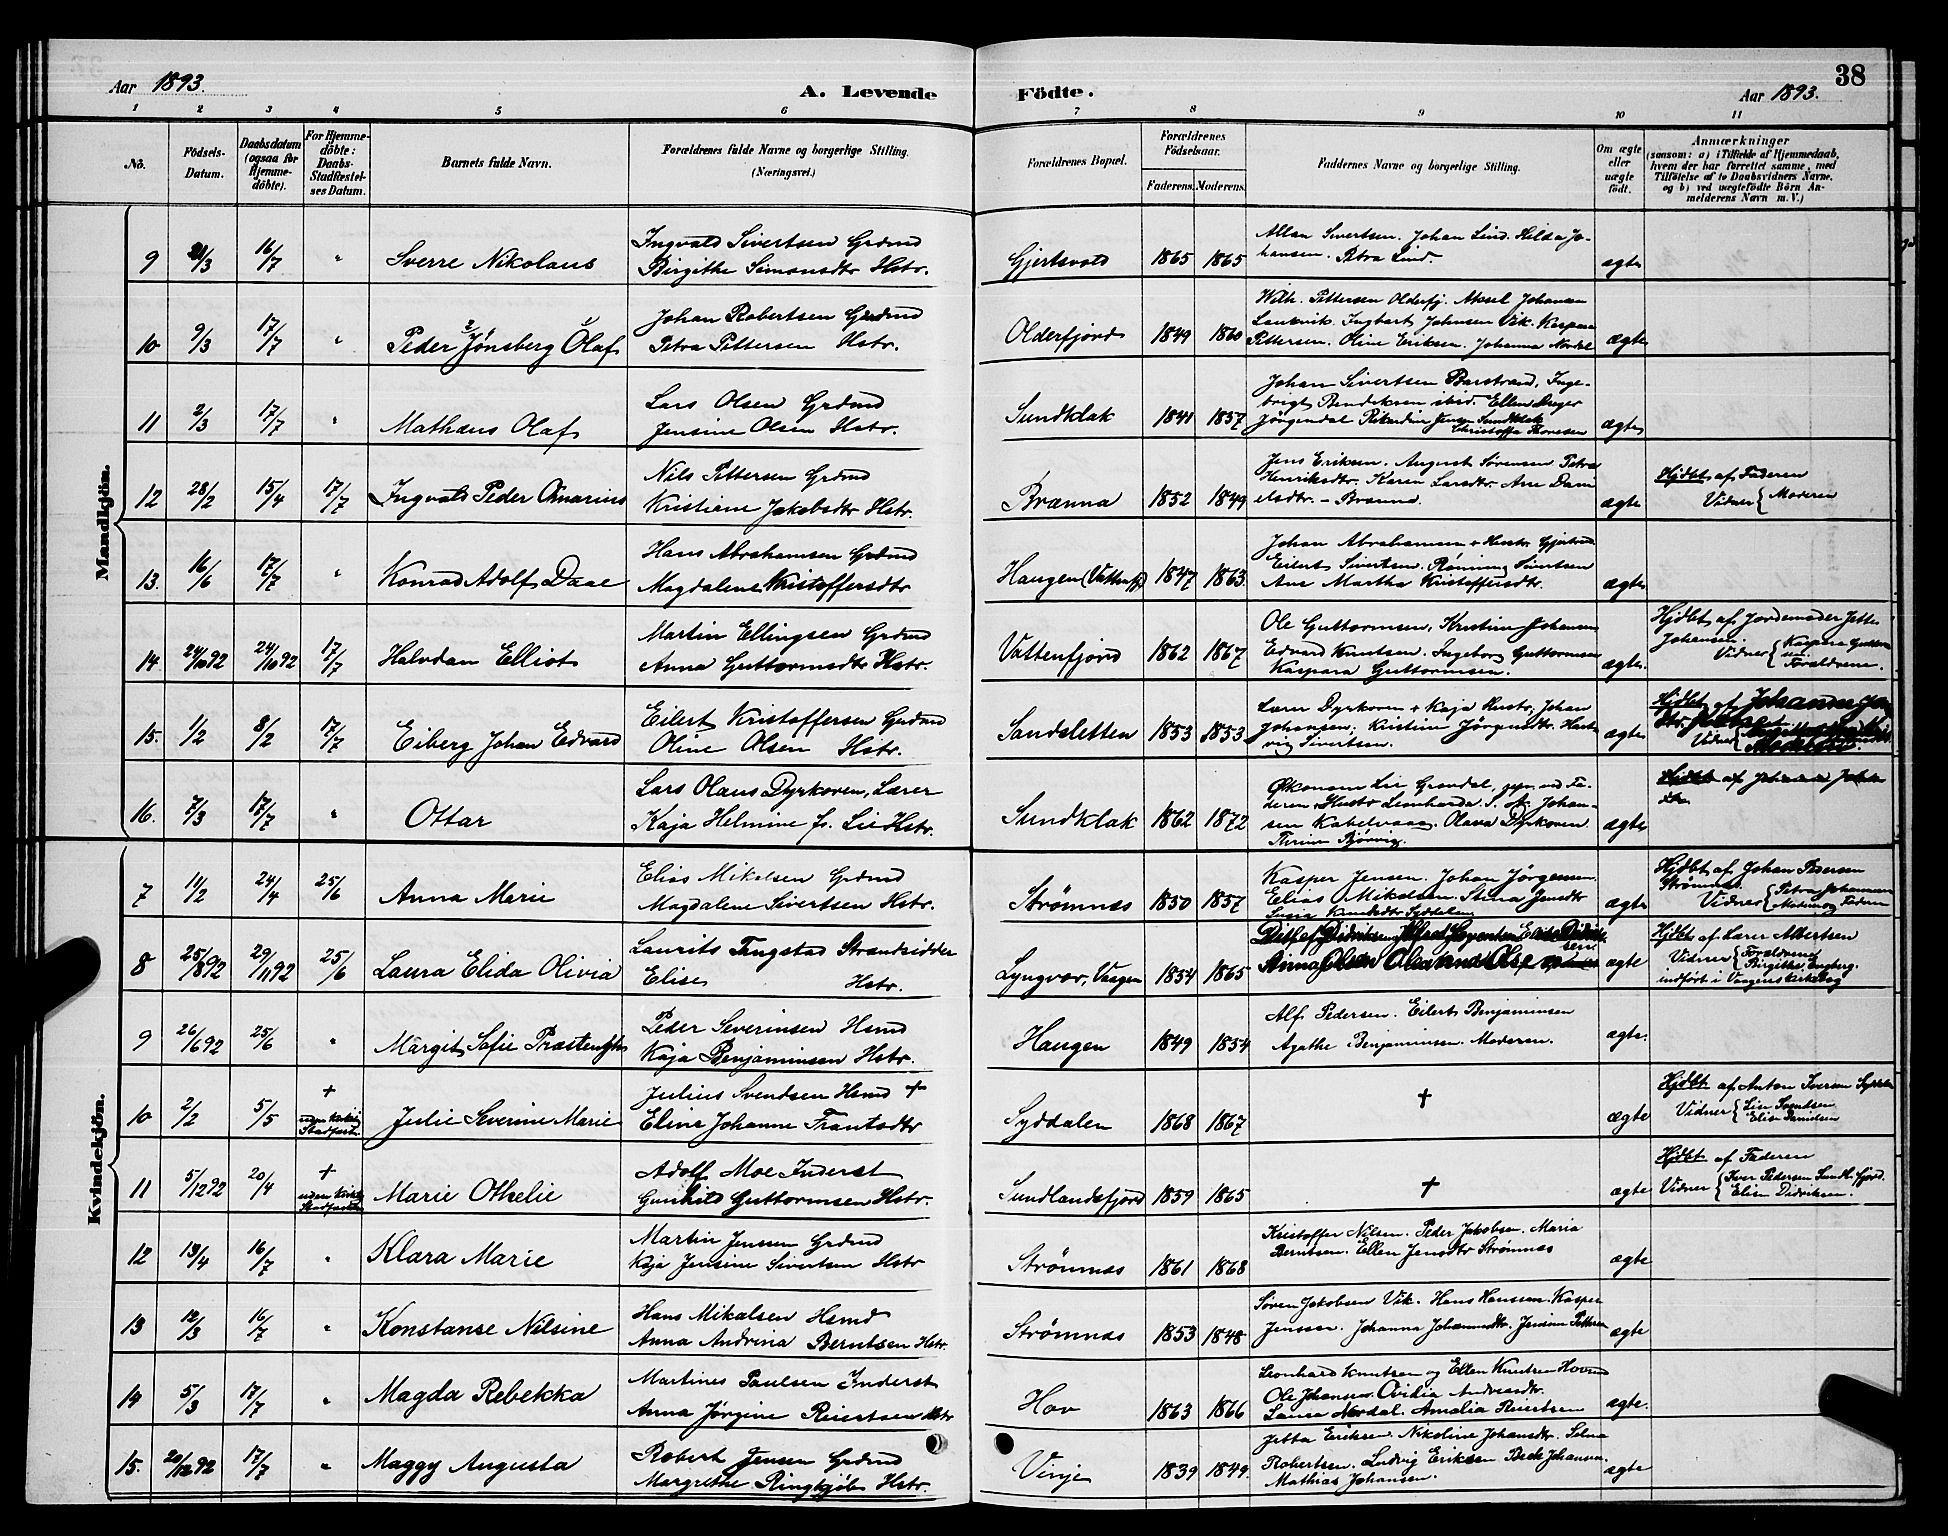 38
Aar 1893.
A. Levende Födte.
Aar 1893.
1 2 3 4 5 6 7 8 9 10 11
No.
Födsels-Datum.
Daabsdatum (ogsaa for Hjemme-döbte).
For Hjemme-döbte: Daabs-Stadfæstel-ses Datum.
Barnets fulde Navn.
Forældrenes fulde Navne og borgerlige Stilling.
(Næringsvei.)
Forældrenes Bopæl.
Forældrenes Födselsaar.
Faderens. Moderens.
Faddernes Navne og borgerlige Stilling.
Om ægte eller uægte födt.
Anmærkninger
(saasom: a) i Tilfælde af Hjemmedaab,
hvem der har forrettet samme, med
Tilföielse af to Daabsvidners Navne,
og b) ved uægtefödte Börn An-
melderens Navn m. V.)
Mandkjön.
9 /3 16/7 " Sverre Nikolaus
Ingvald Sivertsen Grdmd
Birgithe Simonsdtr Hstr.
Gjertsvold 1865 1865
Allan Sivertsen. Johan Lind. Hilda Jo-
hansen. Petra Lind.
ægte
10 9/3 17/7 " Peder Jönsberg Olaf
Johan Robertsen Grdmd
Petra Pettersen Hstr.
Olderfjord 1849 1860
Wilh. Pettersen Olderfj. Aksel Johansen
Laukvik. Ingbart Johnsen Vik. Kaspara
Pettersen. Oline Eriksen. Johanna Nordal
ægte
11 2/3 17/7 " Mathæus Olaf
Lars Olsen Grdmd
Jensine Olsen Hstr.
Sundklak 1841 1857
Johan Sivertsen Barstrand, Inge-
brigt Bendiksen ibid. Ellen Inger
Jörgensdal Rikardine Jensen Sundklak
Christoffa Thoresen
ægte
12 28/2 15/4 17/7 Ingvald Peder Amarius
Nils Pettersen Grdmd
Kristiane Jakobsdtr Hstr.
Brænna 1852 1849
Jens Eriksen. August Sörensen. Petra
Henriksdtr. Karen Larsdtr. Ane Dani
elsdtr. – Brænna.
ægte
Hjdbt af Faderen
Vidner { Moderen
13. 16/6 17/7 " Konrad Adolf Daae
Hans Abrahamsen Grdmd
Magdalene Kristoffersdtr
Haugen (Vattenfj) 1847 1863.
Johan Abrahamsen + Hustr Gjertrud
Eilert Sivertsen. Rønnaug Sivertsen
Ane Martha Kristoffersdtr.
ægte
14 24/10 92 24/10 92 17/7 Halvdan Elliot
Martin Ellingsen Grdmd
Anna Guttormsdtr Hstr.
Vattenfjord 1862 1867
Ole Guttormsen, Kristine Johansen
Edvard Knutsen. Ingeborg Guttormsen
Kaspara Guttormsen.
ægte.
Hjdbt af Jordemoder Jette
Johansen.
Vidner { Kaspara Guttorm
sen.
Forældrene.
15. 1/2 8/2 17/7 Eiberg Johan Edvard
Eilert Kristoffersen Grdmd
Oline Olsen Hstr.
Sandsletten 1853 1853
Lærer Dyrkoren + Kaja Hustr, Johan
Johansen; Kristine Jørgensdtr. Hart
vig Sivertsen.
ægte
Hjdbt af Johanna
Vidner {
16. 7/3 17/7 " Ottar
Lars Olaus Dyrkoren, Lærer
Kaja Helmine f. Lie Hstr.
Sundklak 1862 1872
Økonom Lie Grøndal, repr. ved Fa-
deren + Hustr Leonharda. S. A. Johan-
sen Kabelvaag. Olava Dyrkoren.
Thrine Bjørvig.
ægte
Kvindekjön.
7 11/2 24/4 25/6 Anna Marie
Elias Mikalsen Grdmd
Magdalene Sivertsen Hstr.
Strømnæs 1850 1857
Kasper Jensen. Johan Jörgensen.
Elias Mikalsen. Stina Jensdtr
Syddalen
ægte
Hjdbt af Johan Pedersen
Strømnæs.
Vidner { Petra Johannsen
Moderen og Faderen
8 25/8 92 29/11 92 25/6 Laura Elida Olivia
Laurits Tengstad Strandsidder
Elise Hstr.
Lyngvær, Vaagen 1854 1865
ægte
Hjdbt af Lærer Albertsen
Vidner { Forældrene
Birgithe Engberg.
indfört i Vaagens kirkebog
9 26/6 92 25/6 " Margit Sofie Præstengh
Peder Severinsen Hsmd
Kaja Benjaminsen Hstr.
Haugen 1849 1854
Alf Pedersen. Eilert Benjaminsen
Agathe Benjaminsen. Moderen.
ægte.
10 2/2 5/5 + uden kirkelig Stadfæst. Julie Severine Marie
Julius Svendsen Hsmd +
Eline Johanne Frantsdtr
Syddalen 1868 1867
+
ægte
Hjdbt af Anton Iversen Syddalen
Vidner { Lise Svendsen
Elise Danielsen
11 5/12 92 20/4 + uden kirkelig Stadfæstelse Marie Othelie
Adolf Moe Inderst
Gunhild Guttormsen Hstr.
Sundlandsfjord 1859 1865
+
ægte
Hjdbt af Faderen
Vidner { Iver Pedersen Sundl.fjord.
Elise Didriksen.
12 13/4 16/7 " Klara Marie
Martin Jensen Grdmd
Kaja Jensine Sivertsen Hstr
Strømnæs 1861 1868
Kristoffer Nilsen. Peder Jakobsen. Maria
Berntsen. Ellen Jensdtr Strømnæs
ægte
13 12/3 16/7 " Konstanse Nilsine
Hans Mikalsen Hsmd
Anna Andrina Berntsen Hstr.
Strømnæs 1853 1848
Søren Jakobsen Vik. Hans Hansen. Kasper
Jensen. Johanna Johannesdtr. Jensine Pettersen
ægte
14 5/3 17/7 " Magda Rebekka
Martines Paulsen Inderst
Anna Jörgine Reiertsen Hstr
Hov 1863 1866
Leonhard Knutsen og Ellen Knutsen Hovsund
Ole Johansen. Ovidia Andreasdtr.
Laura Nordal. Amalia Reiertsen
ægte.
15. 20/12 92 17/7 " Maggy Augusta
Robert Jensen Grdmd
Margrethe Ringkjöb Hstr.
Vinje 1839 1849.
Jetta Eriksen. Nikoline Johansdtr. Selma
Robertsen. Ludvig Eriksen. Beck Johansen.
Mathias Johansen.
ægte